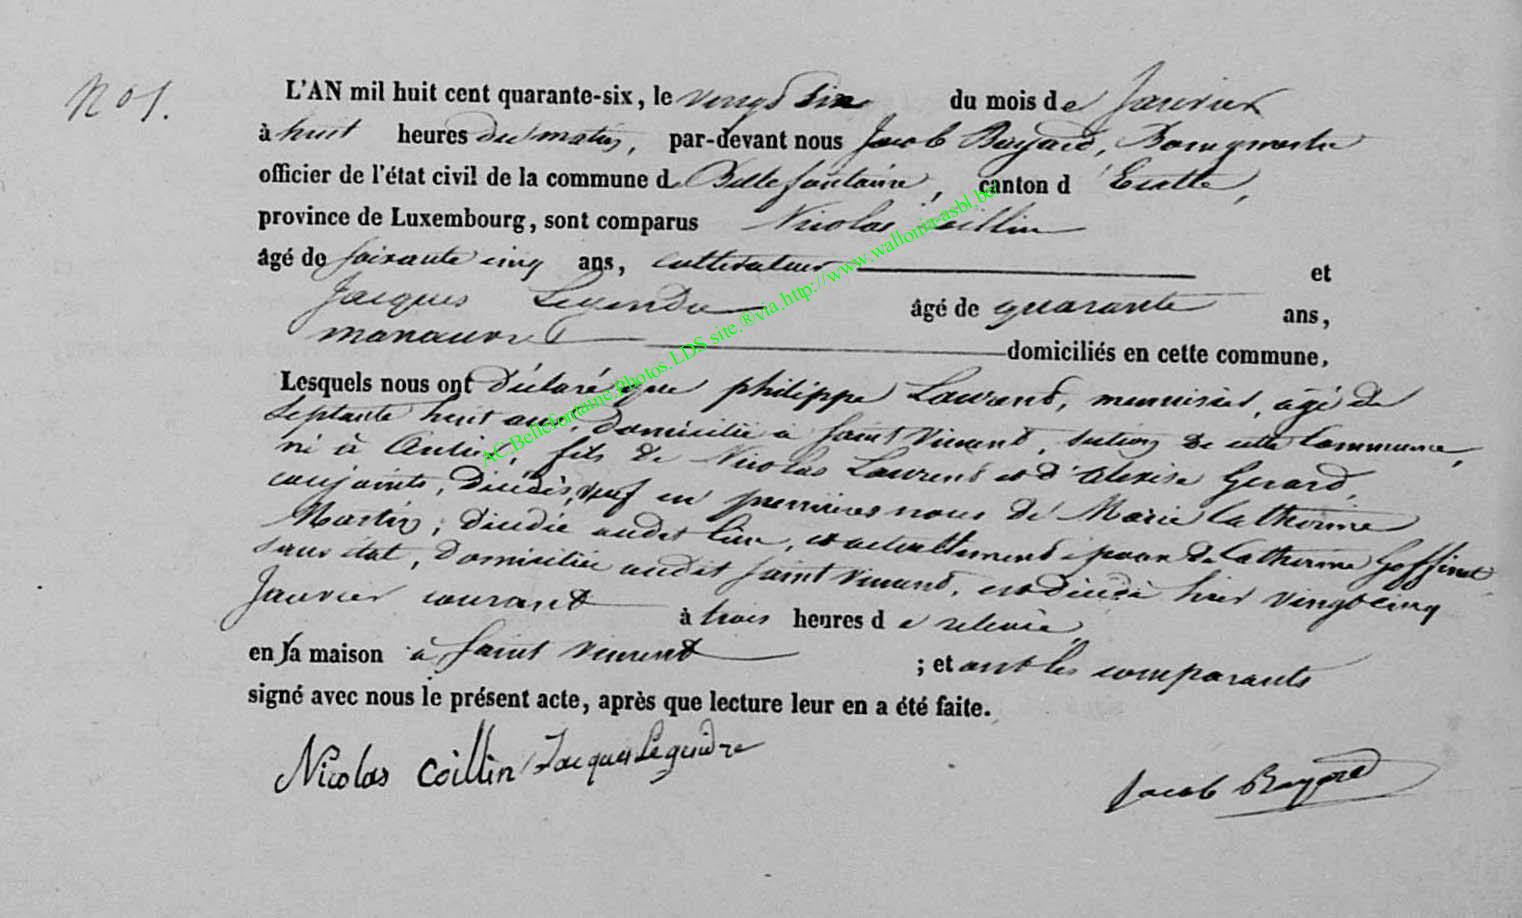 N° 1.
L'AN mil huit cent quarante-six, le vingt six du mois de Janvier
à huit heures du matin, par-devant nous Jacob Bayard, Bourgmestre
officier de l'état civil de la commune de Bellefontaine, canton d'Etalle,
province de Luxembourg, sont comparus Nicolas Coillin
âgé de soixante cinq ans, cultivateur et
Jacques Legendre âgé de quarante ans,
manœuvre domiciliés en cette commune,
Lesquels nous ont déclaré que philippe Laurent, menuisier, agé de
septante huit ans, domicilié à Saint Vincent, section de cette Commune,
né à , fils de Nicolas Laurent et d'Alexise Gerard,
conjoints, décédés, veuf en premieres noces de Marie Catherine
Martin, décédée audit lieu, et actuellement époux de Catherine Goffinet
sans état, domiciliée audit Saint Vincent, est décédé hier vingt cinq
Janvier courant à trois heures de relevée,
en sa maison à Saint Vincent ; et ont les comparants
signé avec nous le présent acte, après que lecture leur en a été faite.
Nicolas Coillin Jacques Legendre
Jacob Bayard
AC.Bellefontaine.Photos.LDS site.®via.http://www.wallonia-asbl.be